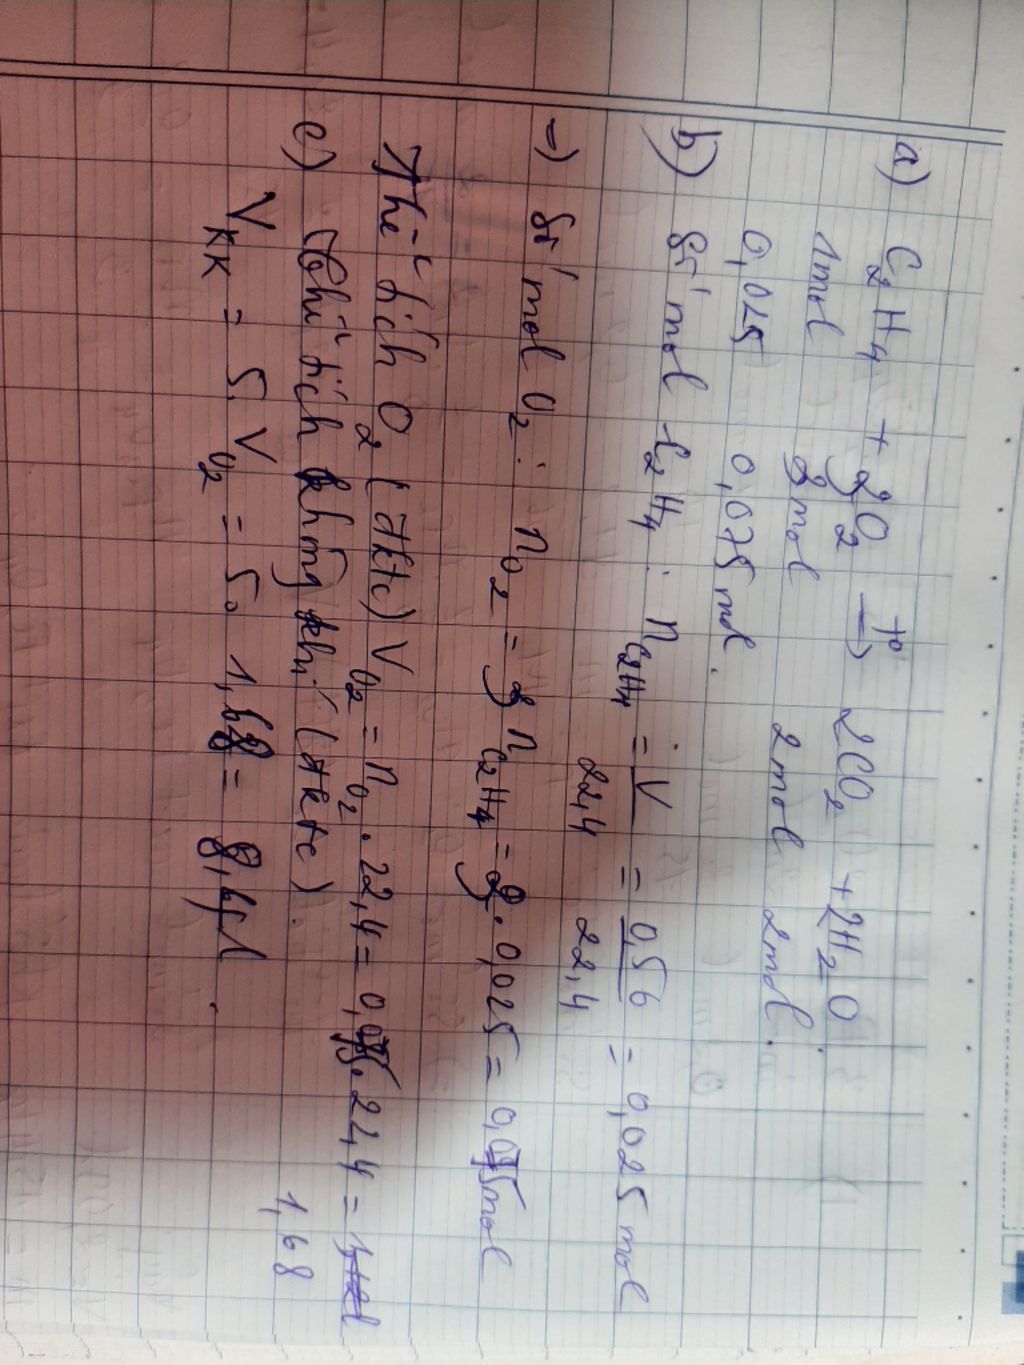 a) C₂H₄ + 3O₂ →t° 2CO₂ + 2H₂O
1mol 3mol 2mol 2mol.
0,025 0,075 mol.
b) Số mol C₂H₄: n C₂H₄ = V/22,4 = 0,56/22,4 = 0,025 mol
=) Số mol O₂: n O₂ = 3 n C₂H₄ = 3. 0,025 = 0,075mol
Thể tích O₂ (đktc) V O₂ = n O₂ . 22,4 = 0,075. 22,4 =
1,68
c) Thể tích không khí (đktc).
V KK = 5. V O₂ = 5. 1,68 = 8,4l.